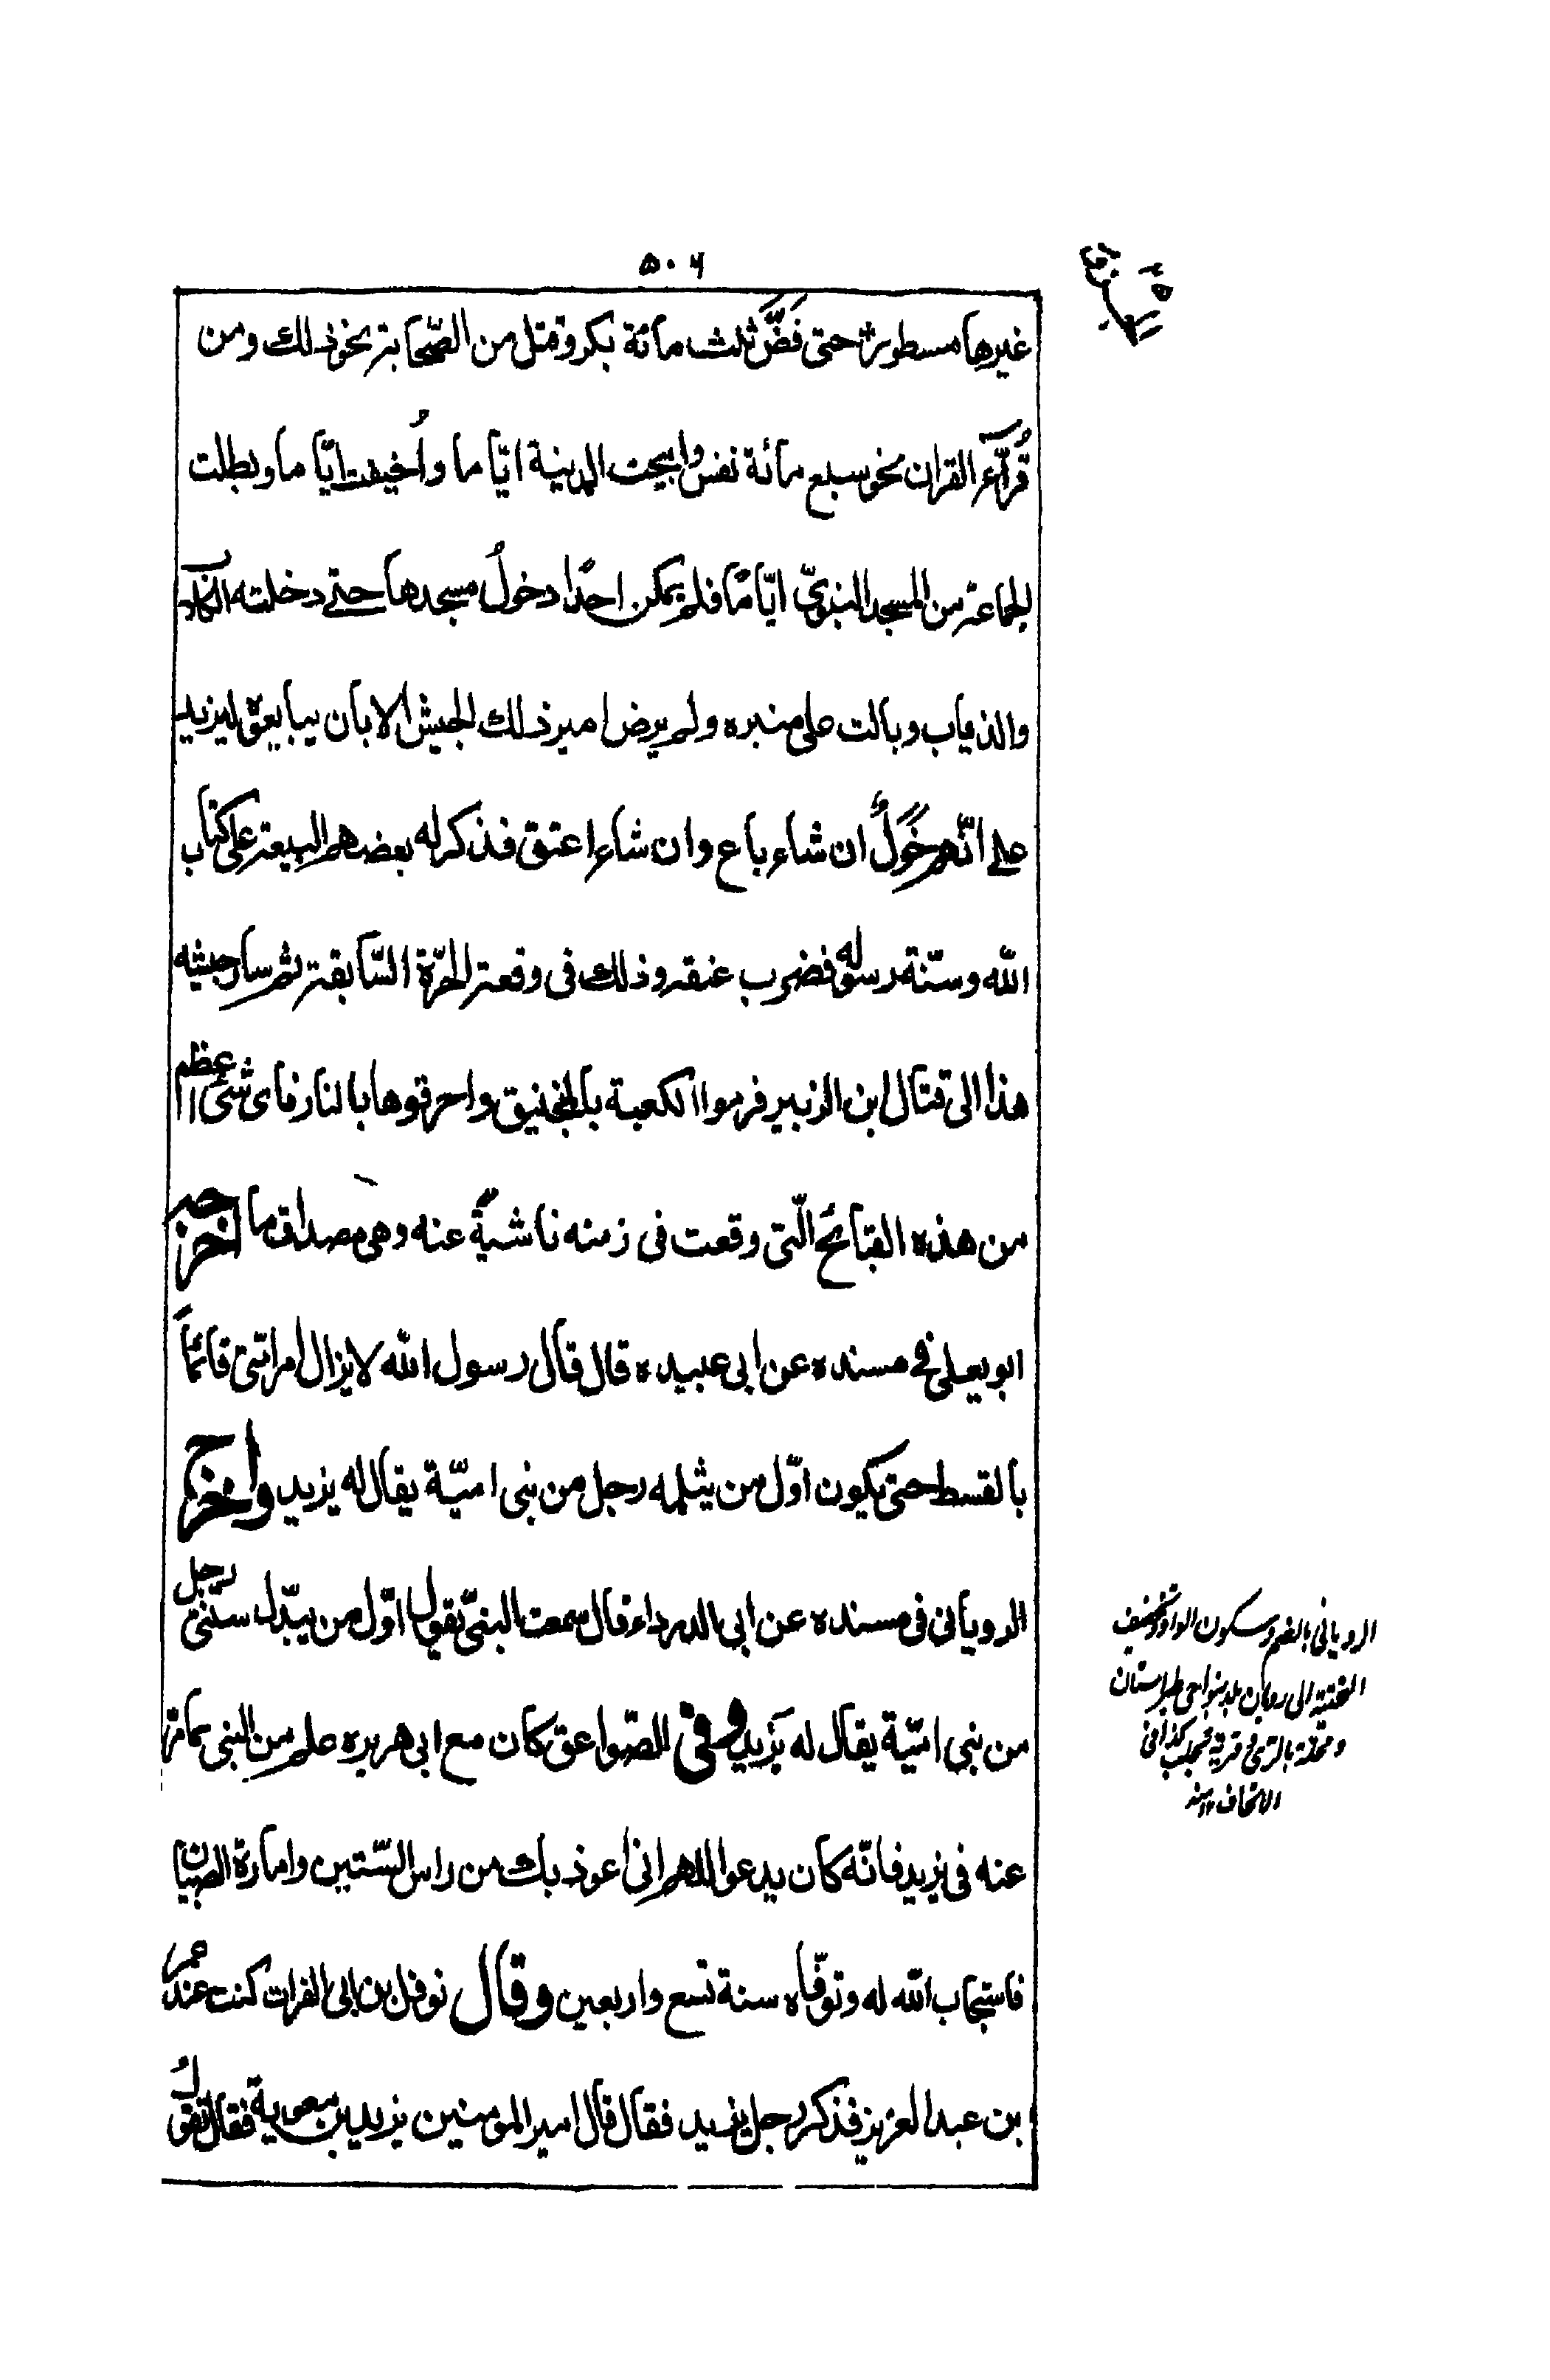 ٥٠٦
غيرها مسطورة حتى فُضَّ ثلث مائة بكر وقتل من الصّحابة نحو ذلك ومن
قُرّآء القران نحو سبع مائة نفس وابيحت المدينة ايّاما وأُخيفت ايّاما وبطلت
الجماعة من المسجد النبويّ ايّامًا فلم يمكن احدًا دخولُ مسجدها حتى دخلته الكلاب
والذياب وبالت على منبره ولم يرض امير ذلك الجيش الا بان يبايعوه ليزيد
على انّهم خَوَلٌ ان شاء باع وان شاء اعتق فذكر له بعضهم البيعة على كتاب
الله وسنّة رسوله فضرب عنقه وذلك فى وقعة الحرّة السّابقة ثم سار جيشه
هذا الى قتال ابن الزبير فرموا الكعبة بالمنجنيق واحرقوها بالنار فاى شئ اعظم
من هذه القبائح الّتى وقعت فى زمنه ناشيةً عنه وهى مصداق ما اخرجه
ابو يعلى فى مسنده عن ابى عبيده قال قال رسول الله لا يزال امر امّتى قائماً
بالقسط حتى يكون اوّل من يثلمه رجل من بنى اميّة يقال له يزيد واخرج
الرويانى فى مسنده عن ابى الدرداء قال سمعت النبىّ يقول اوّل من يبدّل سنّتى رجل
من بنى اميّة يقال له يزيد وفى الصّواعق كان مع ابى هريره علم من النبى بما مرّ
عنه فى يزيد فانّه كان يدعو اللهم انى اعوذ بك من راس السّتين وامارة الصبيان
فاستجاب الله له وتوفّاه سنة تسع واربعين وقال نوفل بن ابى الفرات كنت عند عمر
بن عبد العزيز فذكر رجل يزيد فقال قال امير المومنين يزيد بن معوية فقال تقول
الرويانى بالضم وسكون الواو وتخفيف
التحتية الى رويان بلد بنواحى طبرستان
ومحلة بالرى وقرية بحلب كذا فى
الاتحاف ١٢ سند